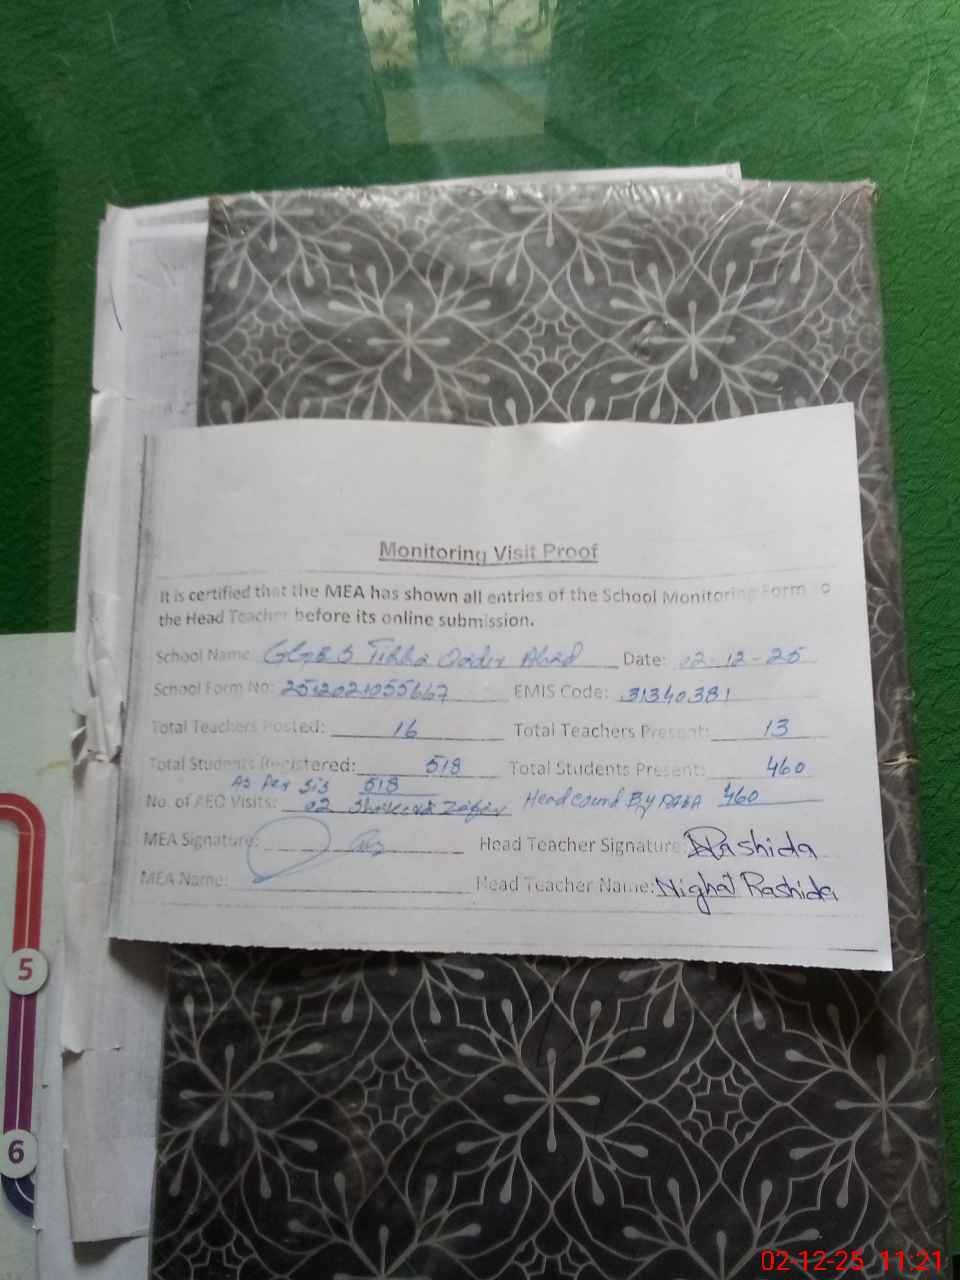 Monitoring Visit Proof
It is certified that the MEA has shown all entries of the School Monitoring Form to
the Head Teacher before its online submission.
School Name: Qadir Abad Date: 02-12-25
School Form No: 2512021055667 EMIS Code: 31340381
Total Teachers Posted: 16 Total Teachers Present: 13
Total Students Registered: 518 Total Students Present: 460
As Per Sis 518
No. of AEO Visits: 02 Head cound By MEA 460
MEA Signature: Head Teacher Signature: NRashida
MEA Name: Head Teacher Name: Nighat Rashida
5
6
02-12-25 11:21